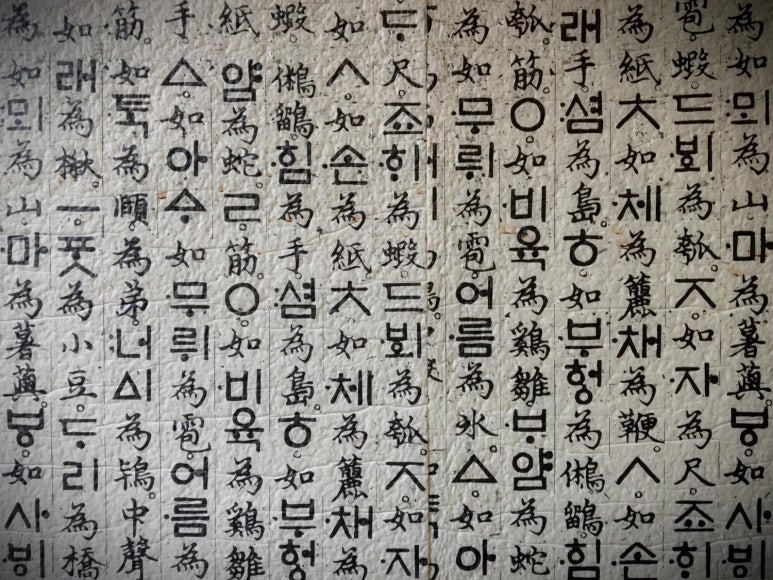 為如:뫼為山。·마為薯藇。ㅸ。如사·ᄫᅵ
雹。蝦。드·ᄫᅴ為瓠。ㅈ。如·자為尺。죠·ᄒᆡ
為紙。ㅊ。如·체為籭。·채為鞭。ㅅ。如·손
래手。:셤為島。ㅎ。如·부헝為鵂鶹。·힘
瓠。筋。ㅇ。如·비육為鷄雛。·ᄇᆞ얌為蛇
為如·무뤼為雹。어·름為氷。ㅿ。如아
드尺。죠·ᄒᆡ為蝦。드·ᄫᅴ為瓠。ㅈ。如·자
如ㅅ。如·손為紙。ㅊ。如·체為籭。·채為
蝦。鵂鶹。·힘為手。:셤為島。ㅎ。如·부헝
紙。얌為蛇。ㄹ筋。ㅇ。如·비육為鷄雛
手。ㅿ。如아ᅀᆞ如·무뤼為雹。어·름為
筋。如·ᄐᆞᆨ為頤。為弟。:너ᅀᅵ為鴇。中聲
如래為楸。ㅡ·ᄑᆞᆺ為小豆。ᄃᆞ리為橋
為如:뫼為山。·마為薯藇。ㅸ。如사·ᄫᅵ